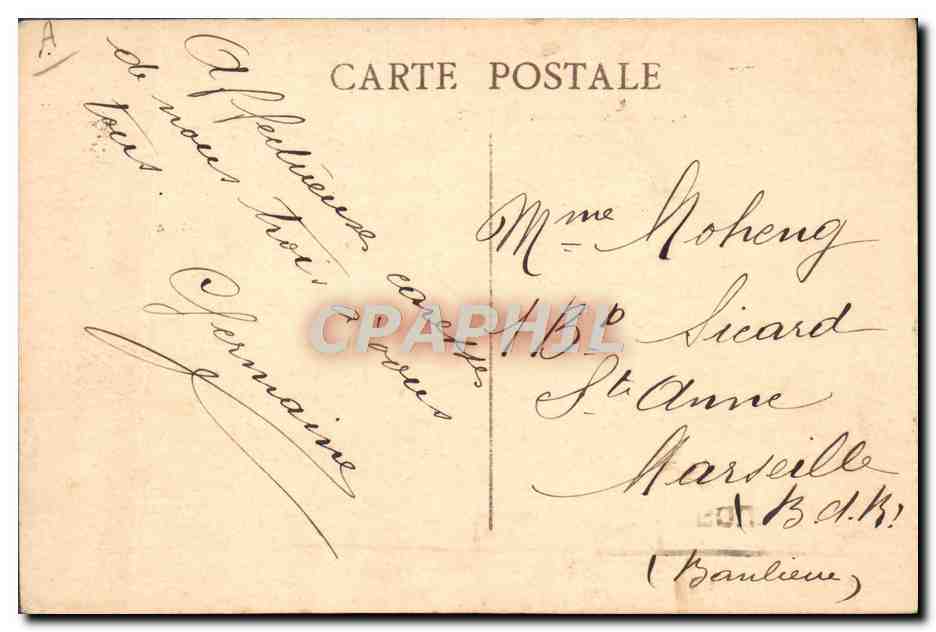 A.
CARTE POSTALE
Affectueuses caresses
de nous trois à vous
tous.
Germaine
Mme Moheng
1 Bd Sicard
Ste Anne
Marseille
(B d. R)
(Banlieue)
CPAPHIL